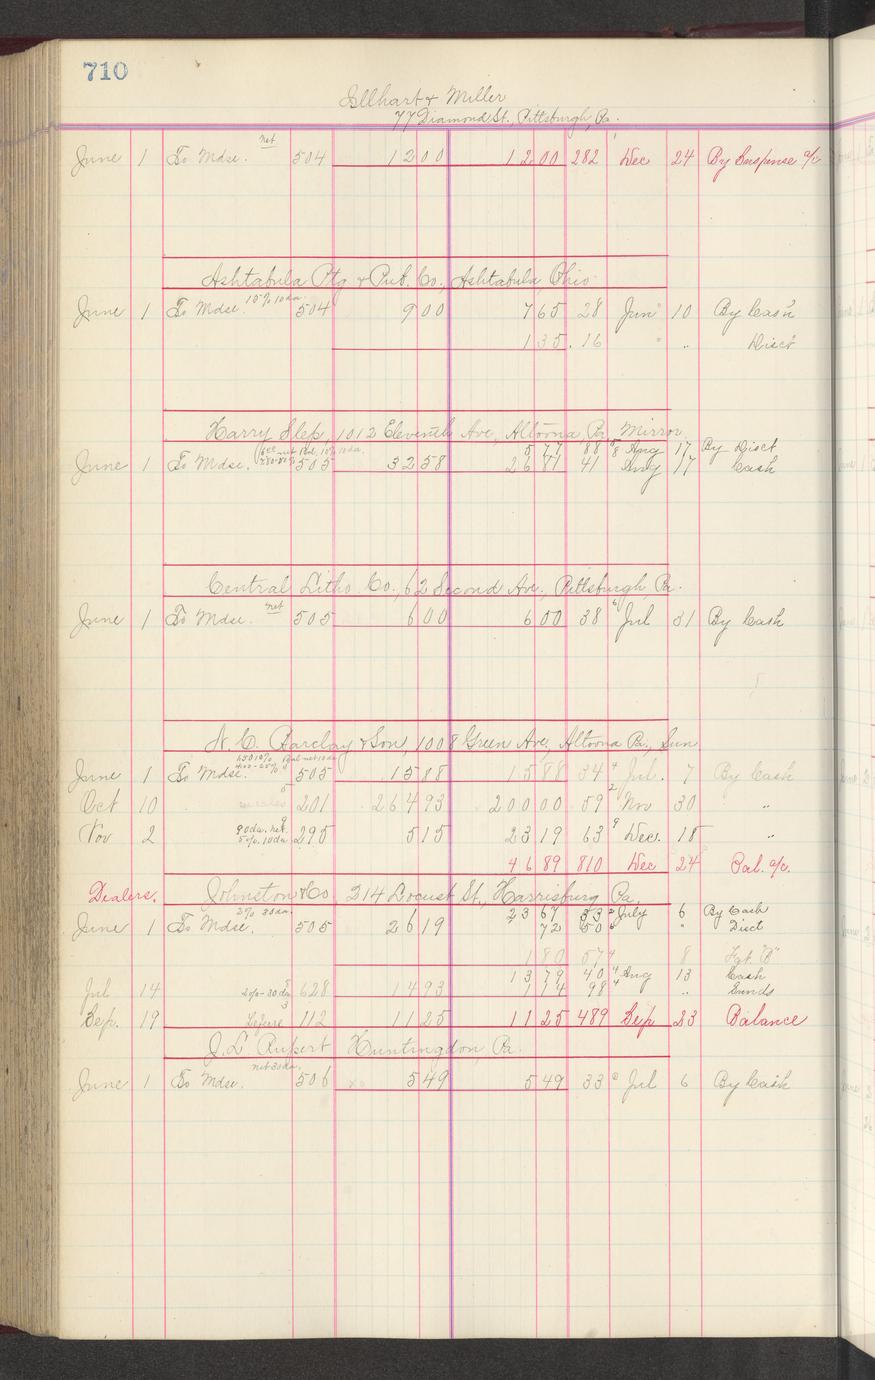 710
& Miller
77 Diamond St., Pittsburgh, Pa.
June 1 To Mdse. net 504 12 00 12 00 282 Dec 24 By Suspense a/c
Ashtabula Ptg. & Pub. Co., Ashtabula Ohio
June 1 To Mdse. 15% 10 da. 504 9 00 7 65 28 Jun 10 By Cash
1 35 16 " " Disct
Harry Slep, 1012 Eleventh Ave., Altoona, Pa. Mirror
5 77 88 Aug 17 By Disct
June 1 To Mdse. 505 32 58 26 81 41 Aug 17 Cash
Central Litho. Co., 62 Second Ave., Pittsburgh, Pa.
June 1 To Mdse. net 505 6 00 6 00 38 Jul 31 By Cash
N. C. Barclay & Son, 1008 Green Ave., Altoona Pa., Sun
June 1 To Mdse. 505 15 88 15 88 34 Jul. 7 By Cash
Oct 10 201 264 93 200 00 59 Nov 30 "
Nov 2 90 da. net 5%. 10 da 295 5 15 23 19 63 Dec. 18 "
46 89 810 Dec 24 Bal. a/c.
Dealers. Johnston & Co 214 Locust St., Harrisburg Pa.
23 67 33 July 6 By Cash
June 1 To Mdse. 2% 30 da. 505 26 19 72 50 " Disct
1 80 57 8 Fgt. "B"
13 79 40 Aug 13 Cash
Jul 14 2% - 30 da 628 14 93 1 14 98 " Sunds
Sep. 19 112 11 25 11 25 489 Sep 23 Balance
J. L. Rupert Huntingdon Pa.
June 1 To Mdse. net 30 da. 506 5 49 5 49 33 Jul 6 By Cash